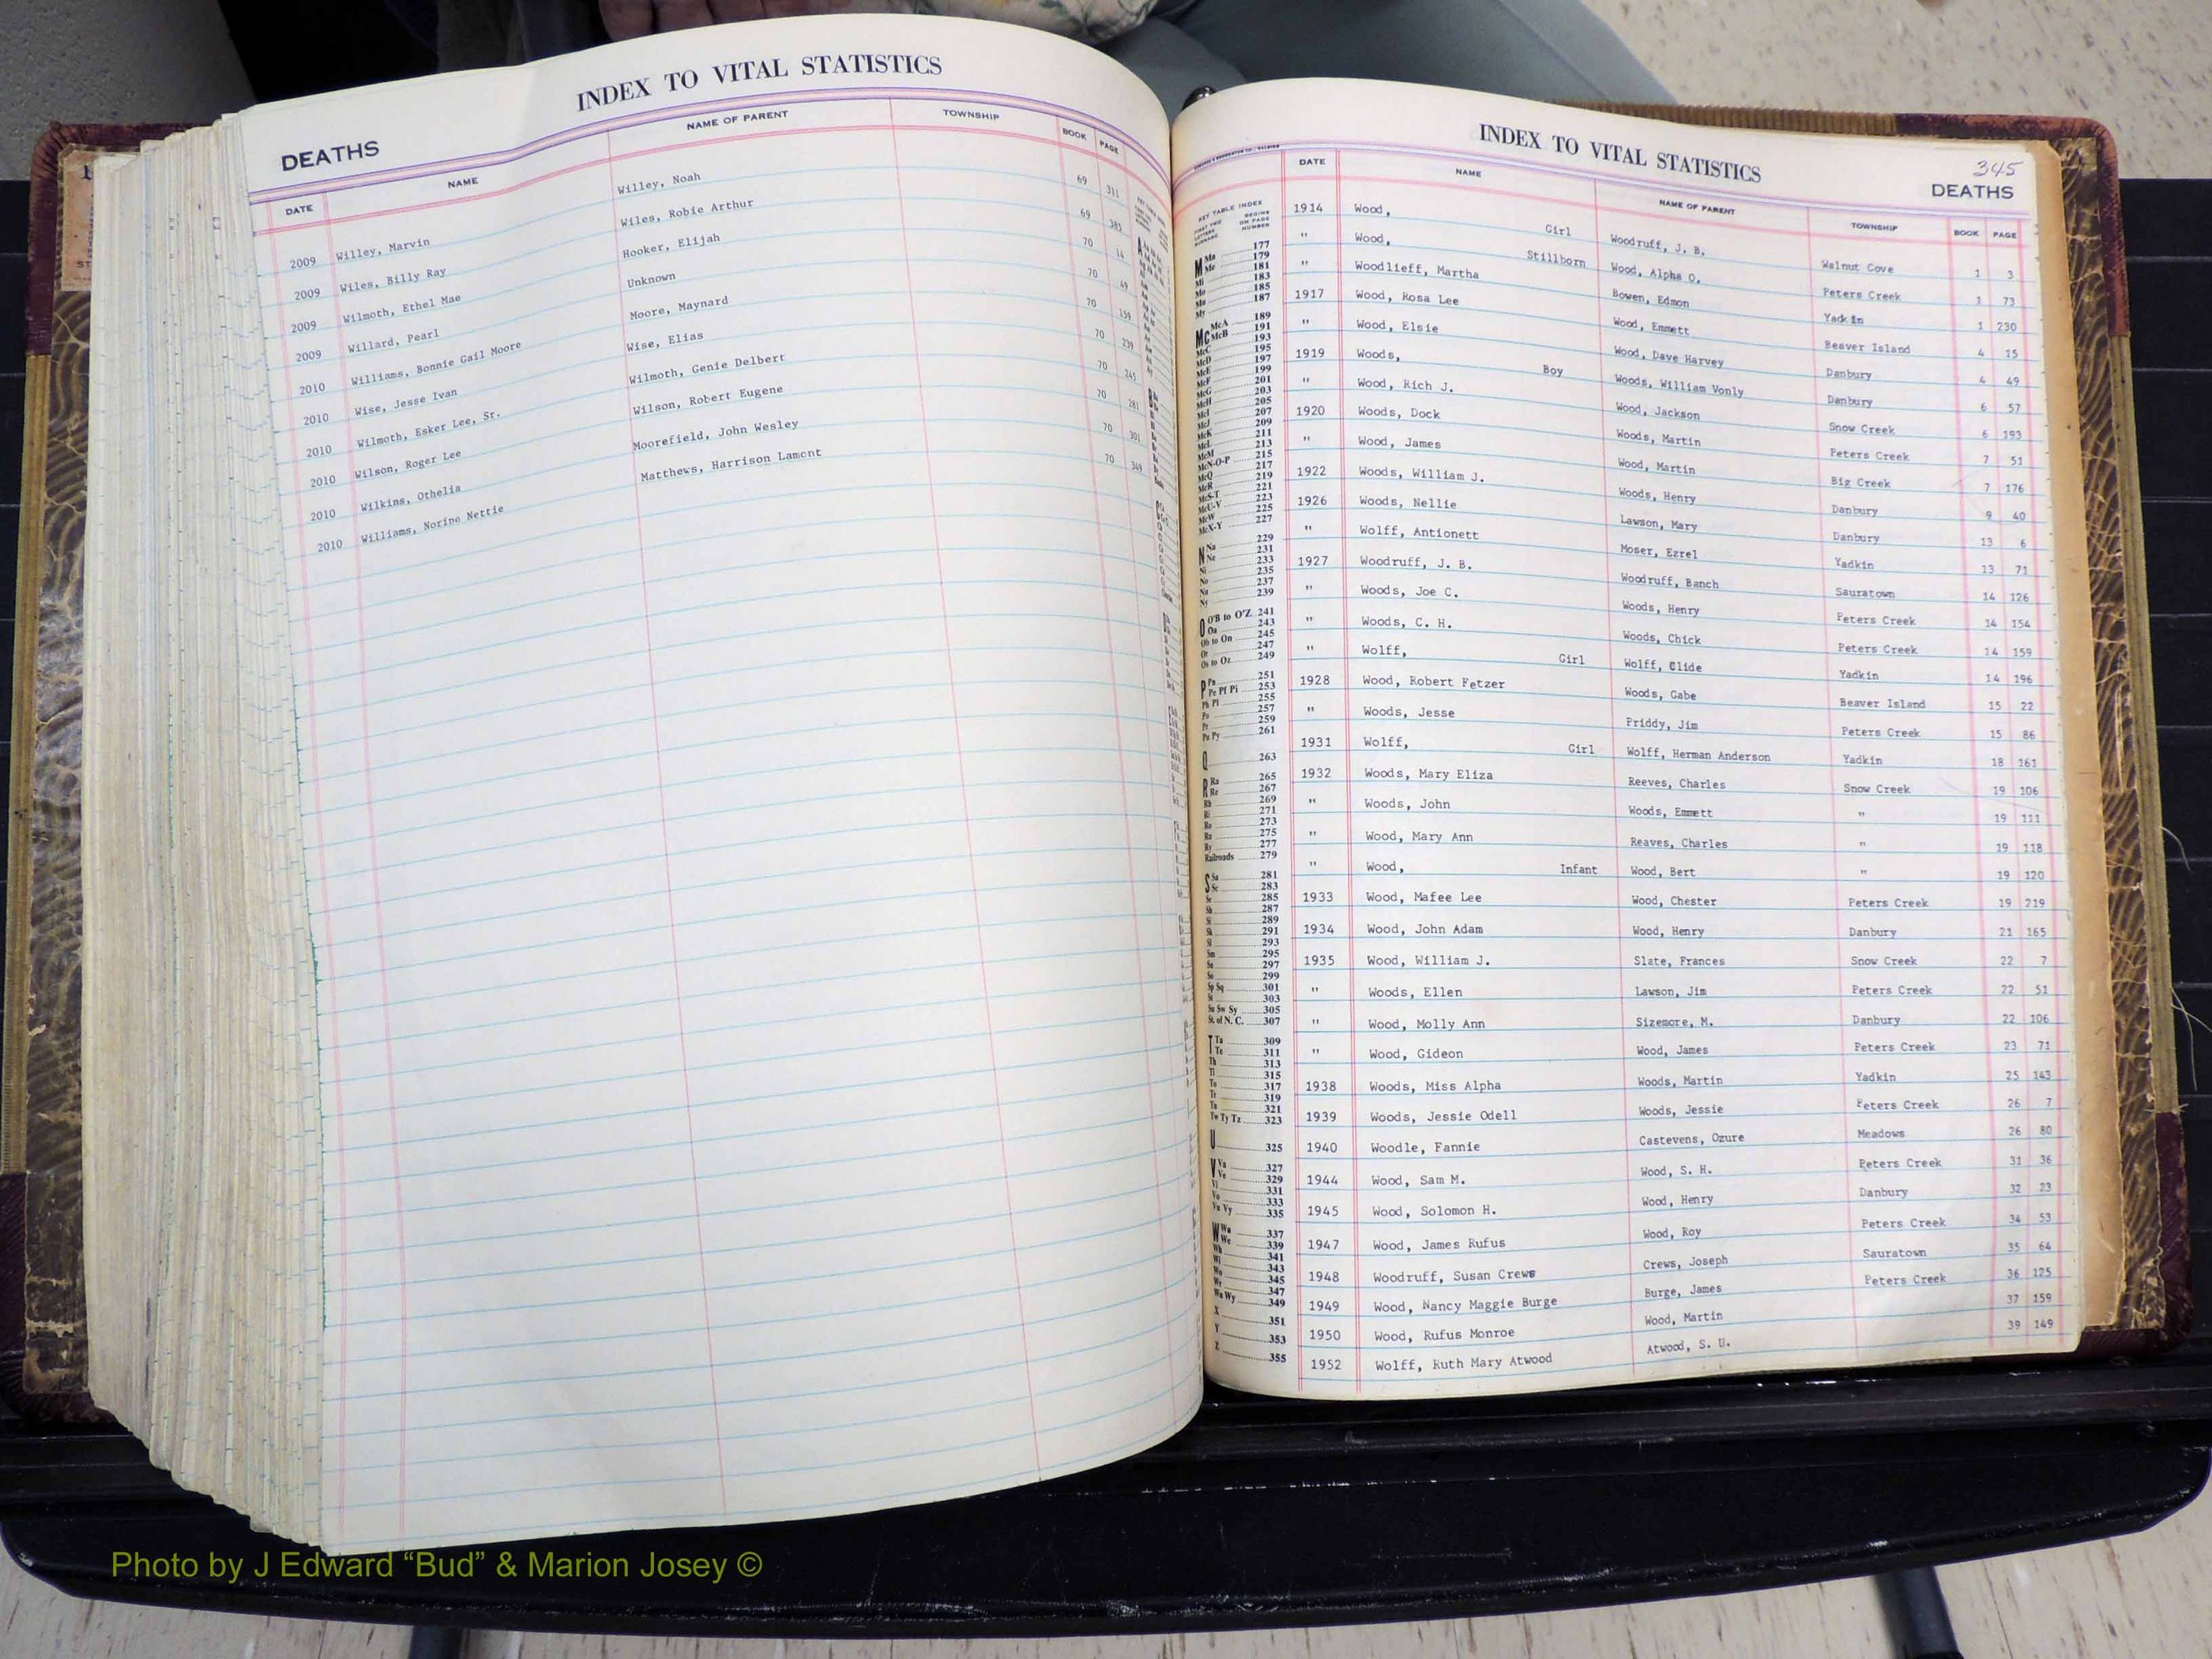 INDEX TO VITAL STATISTICS
DEATHS
DATE NAME NAME OF PARENT TOWNSHIP BOOK PAGE
2009 Willey, Marvin Willey, Noah 69 311
2009 Wiles, Billy Ray Wiles, Robie Arthur 69 385
2009 Wilmoth, Ethel Mae Hooker, Elijah 70 14
2009 Willard, Pearl Unknown 70 49
2010 Williams, Bonnie Gail Moore Moore, Maynard 70 159
2010 Wise, Jesse Ivan Wise, Elias 70 239
2010 Wilmoth, Esker Lee, Sr. Wilmoth, Genie Delbert 70 245
2010 Wilson, Roger Lee Wilson, Robert Eugene 70 281
2010 Wilkins, Othelia Moorefield, John Wesley 70 301
2010 Williams, Norine Nettie Matthews, Harrison Lamont 70 349
INDEX TO VITAL STATISTICS
345
DEATHS
DATE NAME NAME OF PARENT TOWNSHIP BOOK PAGE
1914 Wood, Girl Woodruff, J. B. Walnut Cove 1 3
" Wood, Stillborn Wood, Alpha O. Peters Creek 1 73
" Woodlieff, Martha Bowen, Edmon Yadkin 1 230
1917 Wood, Rosa Lee Wood, Emmett Beaver Island 4 15
" Wood, Elsie Wood, Dave Harvey Danbury 4 49
1919 Woods, Boy Woods, William Vonly Danbury 6 57
" Wood, Rich J. Wood, Jackson Snow Creek 6 193
1920 Woods, Dock Woods, Martin Peters Creek 7 51
" Wood, James Wood, Martin Big Creek 7 176
1922 Woods, William J. Woods, Henry Danbury 9 40
1926 Woods, Nellie Lawson, Mary Danbury 13 6
" Wolff, Antionett Moser, Ezrel Yadkin 13 71
1927 Woodruff, J. B. Woodruff, Banch Sauratown 14 126
" Woods, Joe C. Woods, Henry Peters Creek 14 154
" Woods, C. H. Woods, Chick Peters Creek 14 159
" Wolff, Girl Wolff, Clide Yadkin 14 196
1928 Wood, Robert Fetzer Woods, Gabe Beaver Island 15 22
" Woods, Jesse Priddy, Jim Peters Creek 15 86
1931 Wolff, Girl Wolff, Herman Anderson Yadkin 18 161
1932 Woods, Mary Eliza Reeves, Charles Snow Creek 19 106
" Woods, John Woods, Emmett " 19 111
" Wood, Mary Ann Reaves, Charles " 19 118
" Wood, Infant Wood, Bert " 19 120
1933 Wood, Mafee Lee Wood, Chester Peters Creek 19 219
1934 Wood, John Adam Wood, Henry Danbury 21 165
1935 Wood, William J. Slate, Frances Snow Creek 22 7
" Woods, Ellen Lawson, Jim Peters Creek 22 51
" Wood, Molly Ann Sizemore, M. Danbury 22 106
" Wood, Gideon Wood, James Peters Creek 23 71
1938 Woods, Miss Alpha Woods, Martin Yadkin 25 143
1939 Woods, Jessie Odell Woods, Jessie Peters Creek 26 7
1940 Woodle, Fannie Castevens, Ozure Meadows 26 80
1944 Wood, Sam M. Wood, S. H. Peters Creek 31 36
1945 Wood, Solomon H. Wood, Henry Danbury 32 23
1947 Wood, James Rufus Wood, Roy Peters Creek 34 53
1948 Woodruff, Susan Crews Crews, Joseph Sauratown 35 64
1949 Wood, Nancy Maggie Burge Burge, James Peters Creek 36 125
1950 Wood, Rufus Monroe Wood, Martin 37 159
1952 Wolff, Ruth Mary Atwood Atwood, S. U. 39 149
Photo by J Edward “Bud” & Marion Josey ©